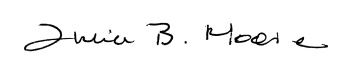 Julia B. Moore